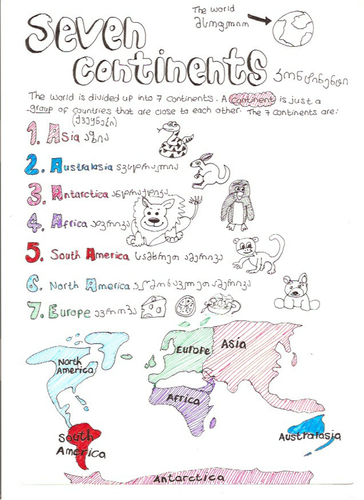 The world
მსოფლიო
Seven
Continents კონტინენტი
The world is divided up into 7 continents. A continent is just a
group of countries that are close to each other. The 7 continents are:
(ქვეყნები)
1. Asia აზია
2. Australasia
3. Antarctica
4. Africa აფრიკა
5. South America სამხრეთ ამერიკა
6. North America ამერიკა
7. Europe ევროპა
North
America
Europe
Asia
Africa
South
America
Australasia
Antarctica